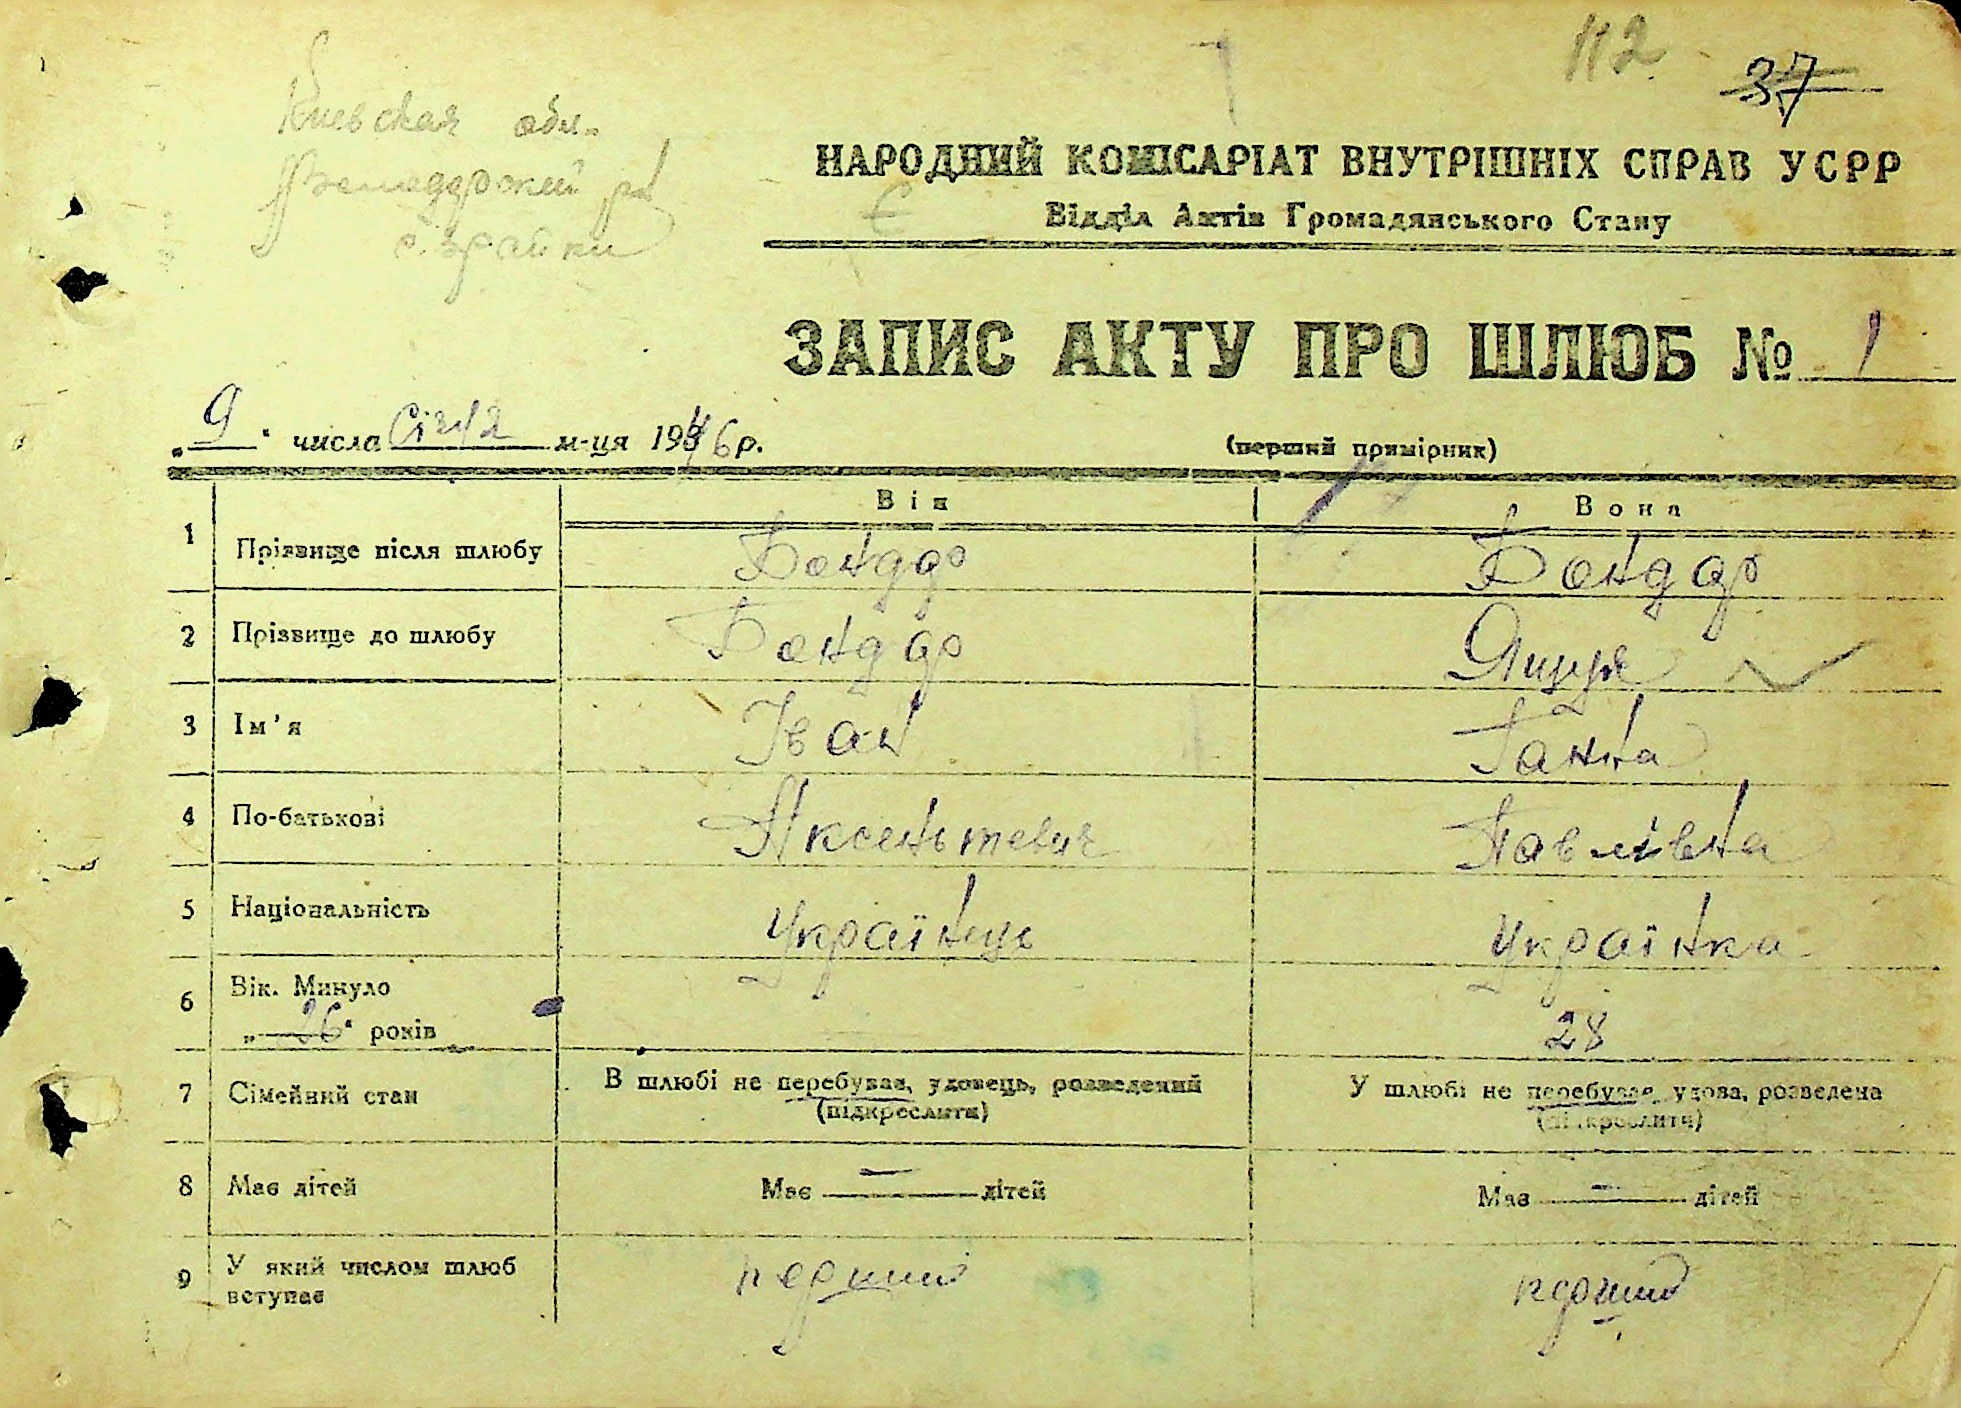 112
37
Киевская обл.
Володарский р/
с. Зрайки
НАРОДНИЙ КОМІСАРІАТ ВНУТРІШНІХ СПРАВ УСРР
Відділ Актів Громадянського Стану
ЗАПИС АКТУ ПРО ШЛЮБ № 1
„9“ числа Січня м-ця 1946 р.
(перший примірник)
Він Вона
1 Прізвище після шлюбу Бондар Бондар
2 Прізвище до шлюбу Бондар Ящук
3 Ім'я Іван Ганна
4 По-батькові Аксентьевич Павлівна
5 Національність Українець Українка
6 Вік. Минуло
„26“ років 28
7 Сімейний стан В шлюбі не перебував, удовець, розведений У шлюбі не перебувае, удова, розведена
(підкреслити) (підкреслити)
8 Має дітей Має — дітей Має — дітей
9 У який числом шлюб перший перший
вступає